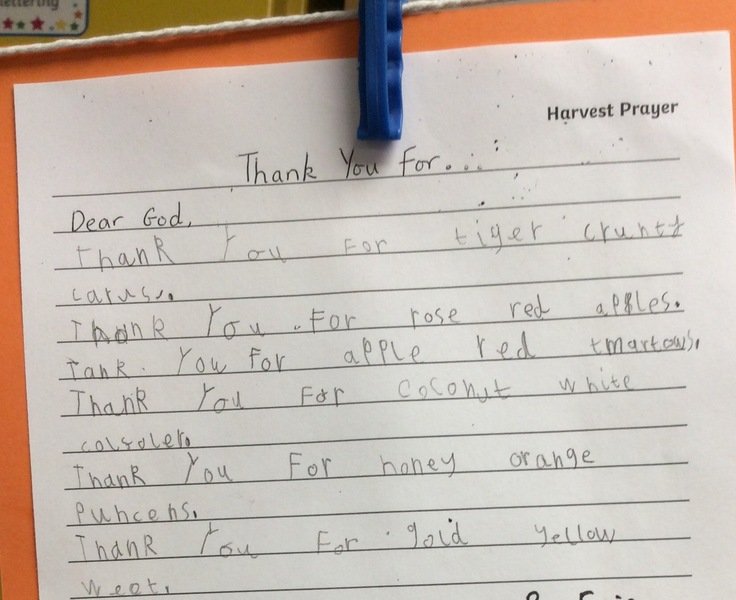 lettering
Harvest Prayer
Thank You For...
Dear God,
Thank You For tiger crunty
carus.
Thank You For rose red apples.
Tank You For apple red tmartows.
Thank You For coconut white
Thank You For honey orange
Puncens.
Thank You For gold yellow
weet.